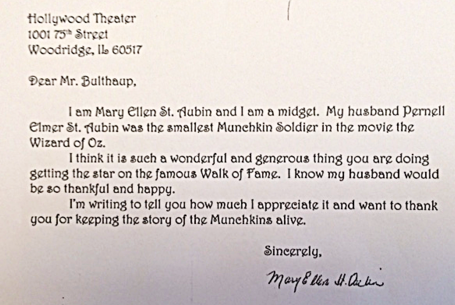 Hollywood Theater
1001 75th Street
Woodridge, IL 60517
Dear Mr. Bulthaup,
I am Mary Ellen St. Aubin and I am a midget. My husband Pernell
Elmer St. Aubin was the smallest Munchkin Soldier in the movie the
Wizard of Oz.
I think it is such a wonderful and generous thing you are doing
getting the star on the famous Walk of Fame. I know my husband would
be so thankful and happy.
I'm writing to tell you how much I appreciate it and want to thank
you for keeping the story of the Munchkins alive.
Sincerely,
Mary Ellen St. Aubin